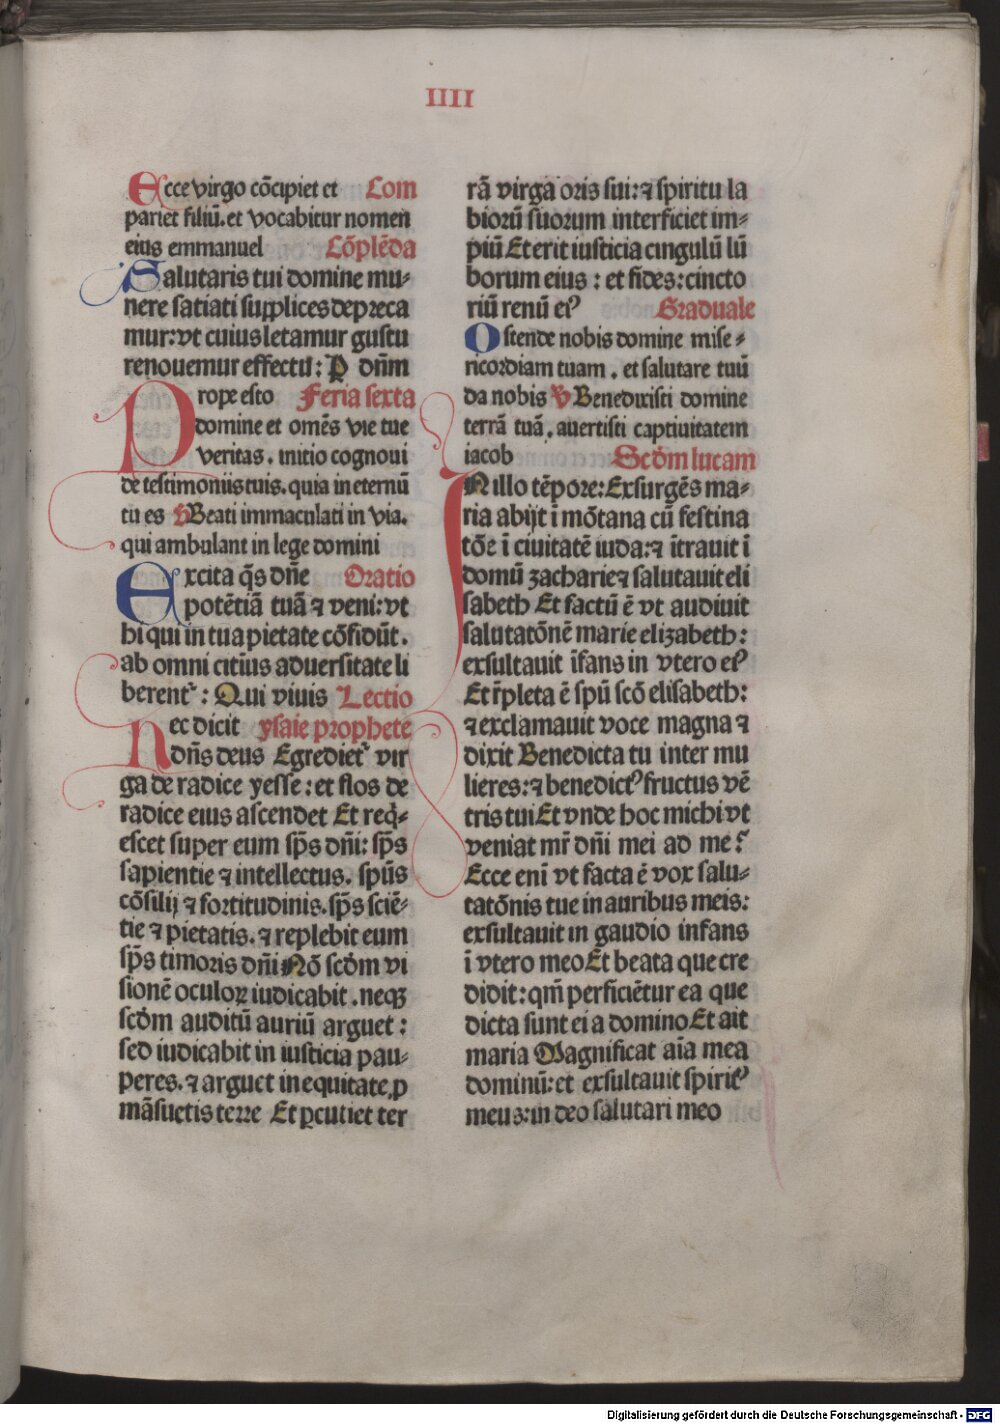 IIII
Ecce virgo cōcipiet et Com
pariet filiū. et vocabitur nomen
eius emmanuel Cōplēda
Salutaris tui domine mu-
nere satiati supplices depreca
mur: vt cuius letamur gustu
renouemur effectū: P dn̄m
Prope esto Feria sexta
domine et omēs vie tue
veritas. initio cognoui
de testimoniis tuis. quia in eternū
tu es V Beati immaculati in via.
qui ambulant in lege domini
Excita q̄s dn̄e Oratio
potētiā tuā ⁊ veni: vt
hi qui in tua pietate cōfidūt.
ab omni citius aduersitate li
berent᷑: Qui viuis Lectio
Nec dicit ysaie prophete
dn̄s deus Egrediet᷑ vir
ga de radice yesse: et flos de
radice eius ascendet Et req̇-
escet super eum sp̄s dn̄i: sp̄s
sapientie ⁊ intellectus. spūs
cōsilij ⁊ fortitudinis. sp̄s sciē-
tie ⁊ pietatis. ⁊ replebit eum
sp̄s timoris dn̄i Nō scd̄m vi
sionē oculoꝝ iudicabit. neqꝫ
scd̄m auditū auriū arguet:
sed iudicabit in iusticia pau-
peres. ⁊ arguet in equitate ꝓ
māsuetis terre Et ꝑcutiet ter
rā virga oris sui: ⁊ spiritu la
biorū suorum interficiet im-
piū Et erit iusticia cingulū lū
borum eius: et fides: cincto
riū renū eiꝰ Graduale
Ostende nobis domine mise-
ricordiam tuam. et salutare tuū
da nobis V Benedixisti domine
terrā tuā. auertisti captiuitatem
iacob Scd̄m lucam
INillo tēpore: Exsurgēs ma-
ria abijt ī mōtana cū festina
tōe ī ciuitatē iuda: ⁊ ītrauit ī
domū zacharie ⁊ salutauit eli
sabeth Et factū ē vt audiuit
salutatōnē marie elizabeth:
exsultauit īfans in vtero eiꝰ
Et r̄pleta ē spū scō elisabeth:
⁊ exclamauit voce magna ⁊
dixit Benedicta tu inter mu
lieres: ⁊ benedictꝰ fructus vē
tris tui Et vnde hoc michi vt
veniat mr̄ dn̄i mei ad me?
Ecce enī vt facta ē vox salu-
tatōnis tue in auribus meis:
exsultauit in gaudio infans
ī vtero meo Et beata que cre
didit: qm̄ perficiētur ea que
dicta sunt ei a domino Et ait
maria Magnificat aīa mea
dominū: et exsultauit spiritꝰ
meus: in deo salutari meo
Digitalisierung gefördert durch die Deutsche Forschungsgemeinschaft - DFG